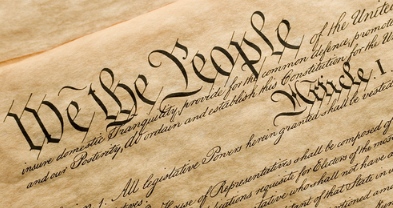 We the People of the United
insure domestic Tranquility, provide for the common defence, promote
and our Posterity, do ordain and establish this Constitution for the U
Article I.
1. All legislative Powers herein granted shall be vested
House of Representatives shall be composed of
requisite for Electors of the most
who shall not have
of that State in